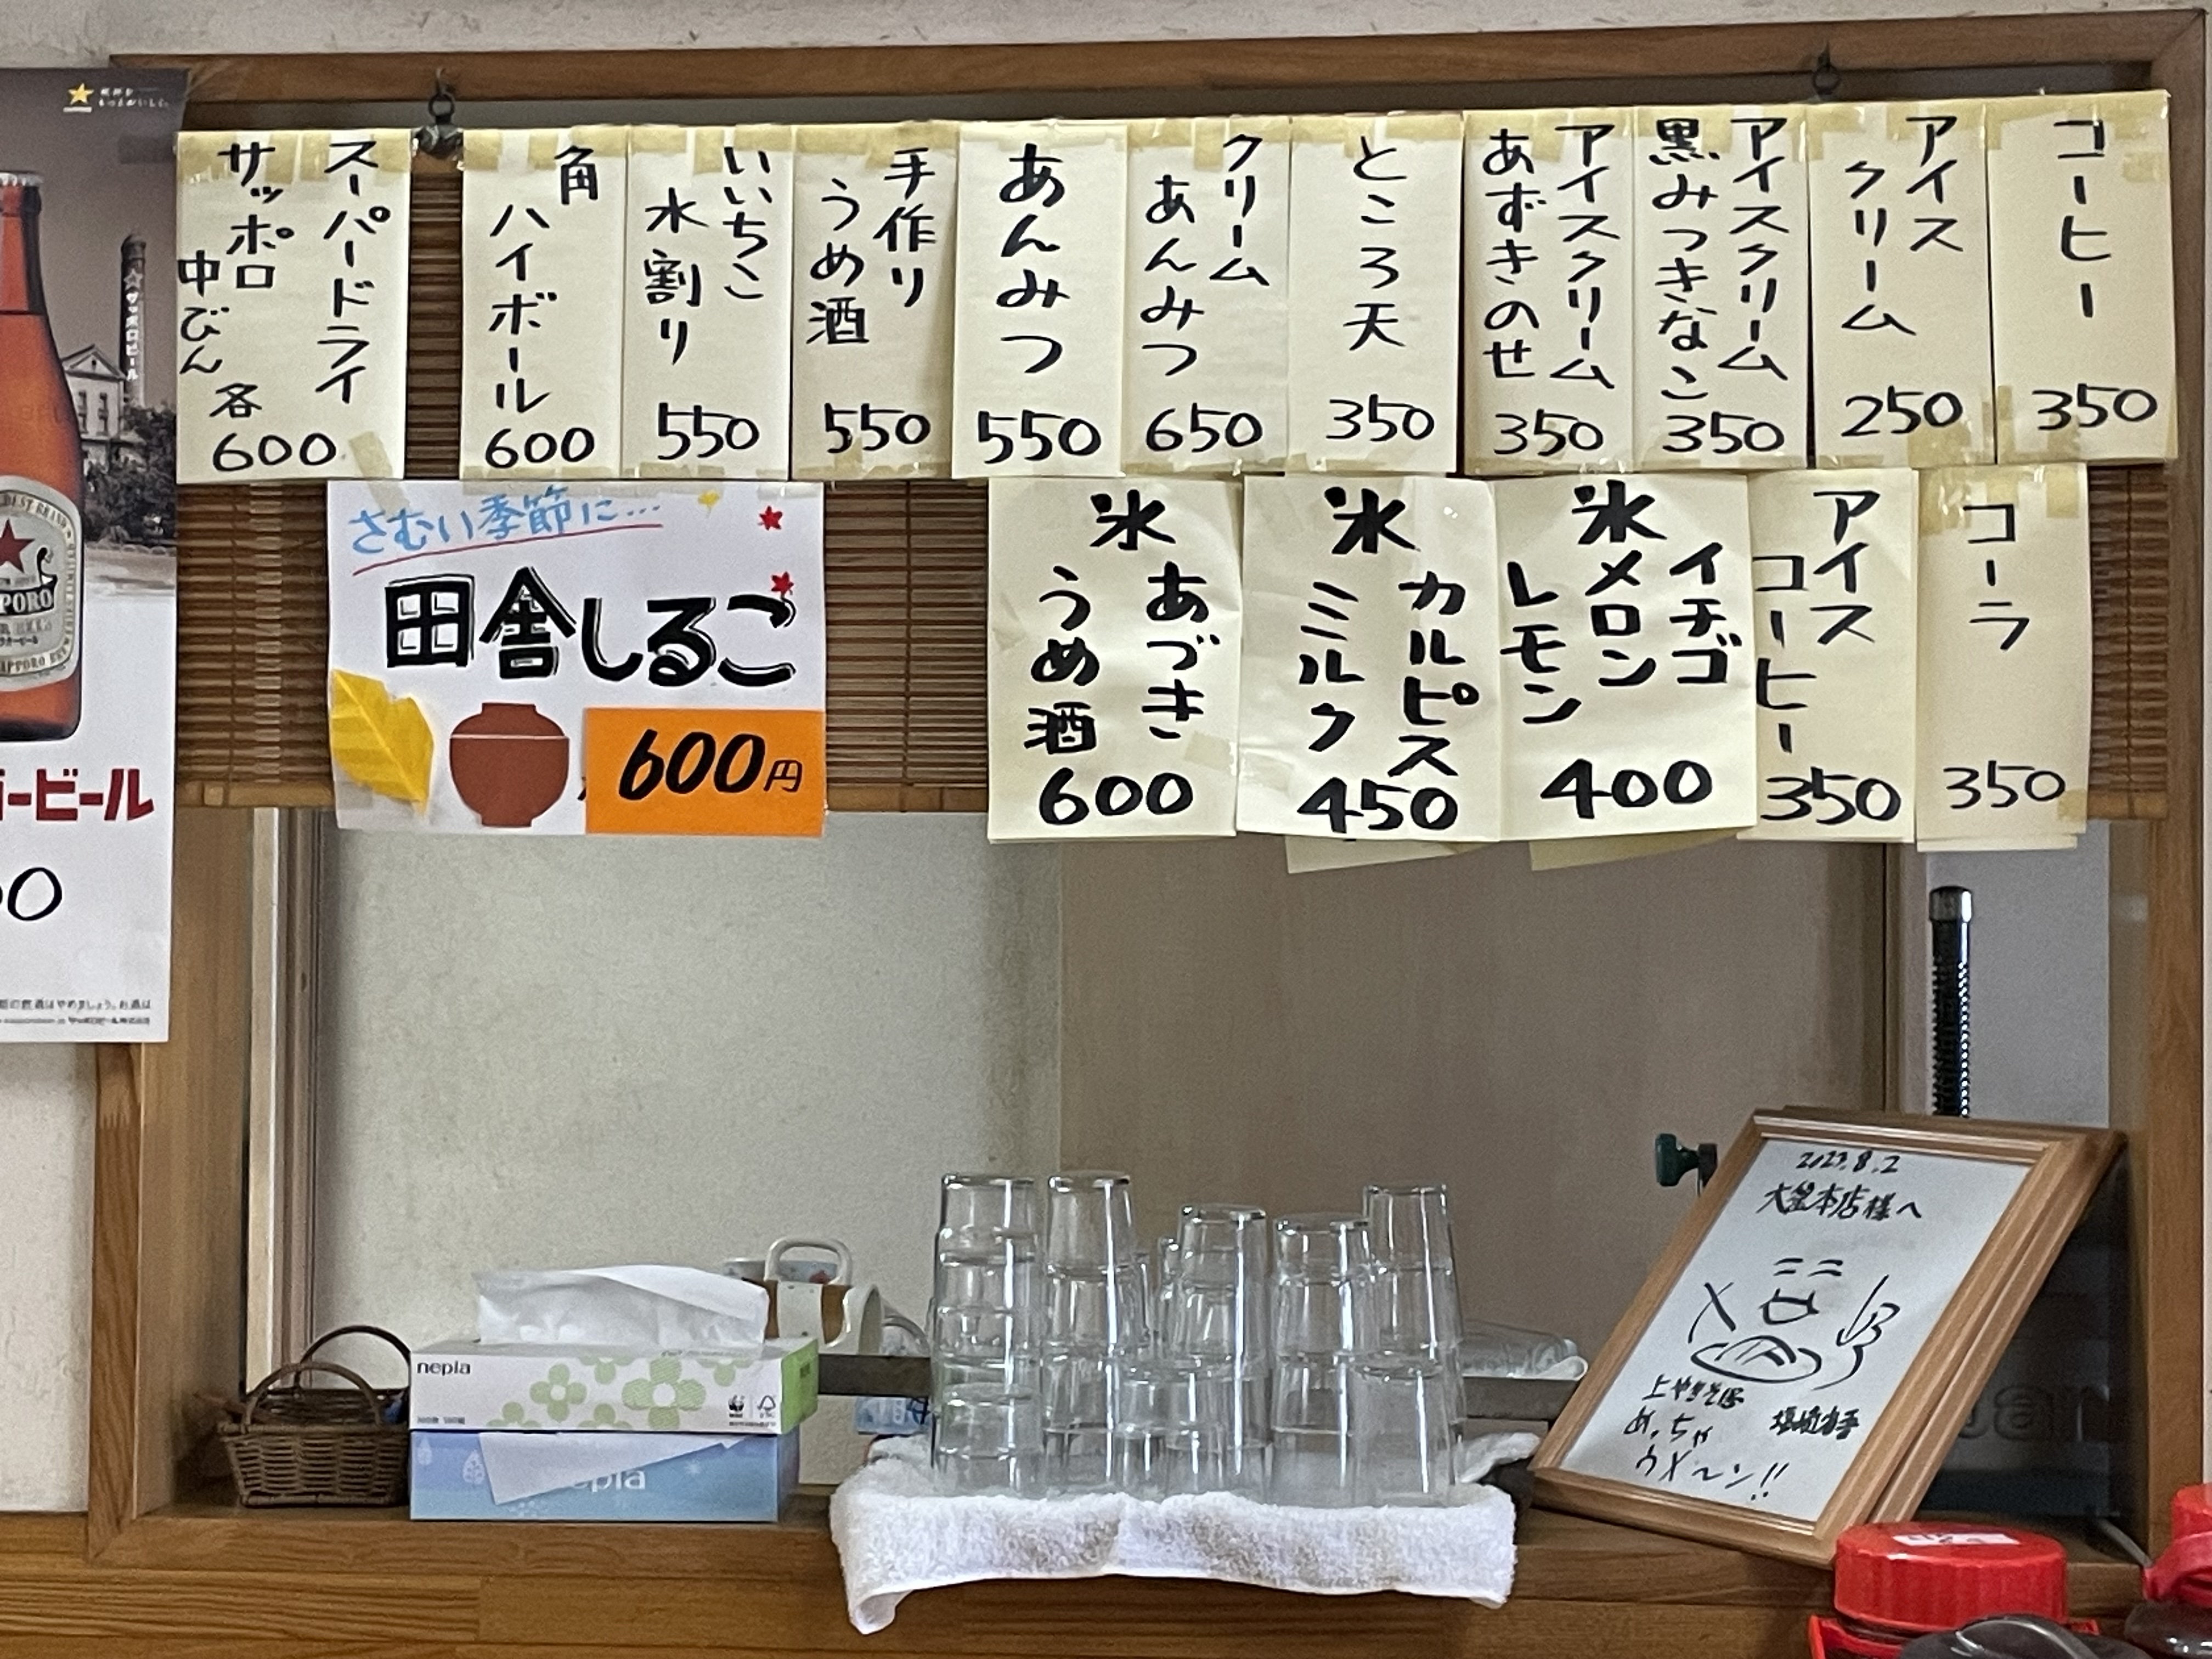 コーヒー
350
アイス
クリーム
250
アイスクリーム
黒みつきなこ
350
アイスクリーム
あずきのせ
350
ところ天
350
クリーム
あんみつ
650
あんみつ
550
手作り
うめ酒
550
いいちこ
水割り
550
角
ハイボール
600
スーパードライ
サッポロ
中びん
各
600
コーラ
350
アイス
コーヒー
350
氷
イチゴ
メロン
レモン
400
氷
カルピス
ミルク
450
氷
あづき
うめ酒
600
さむい季節に…
田舎しるこ
600円
サッポロビール
ービール
nepia
2023.8.2
本店様へ
上やきそば
めっちゃ
ウメ〜ン!!